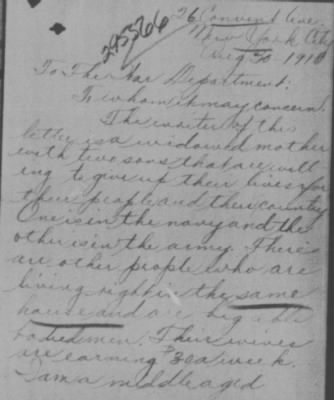 26 Convent Ave.
New York City
Aug 30 1918
245366
To The War Department:
To whom it may concern.
The writer of this
letter is a widowed mother
with two sons that are will
ing to give up their lives for
their people and their country
One is in the navy and the
other is in the army. There's
are other people who are
living right in the same
house and are big able
bodied men. Their wives
are earning $30 a week.
I am a middle aged